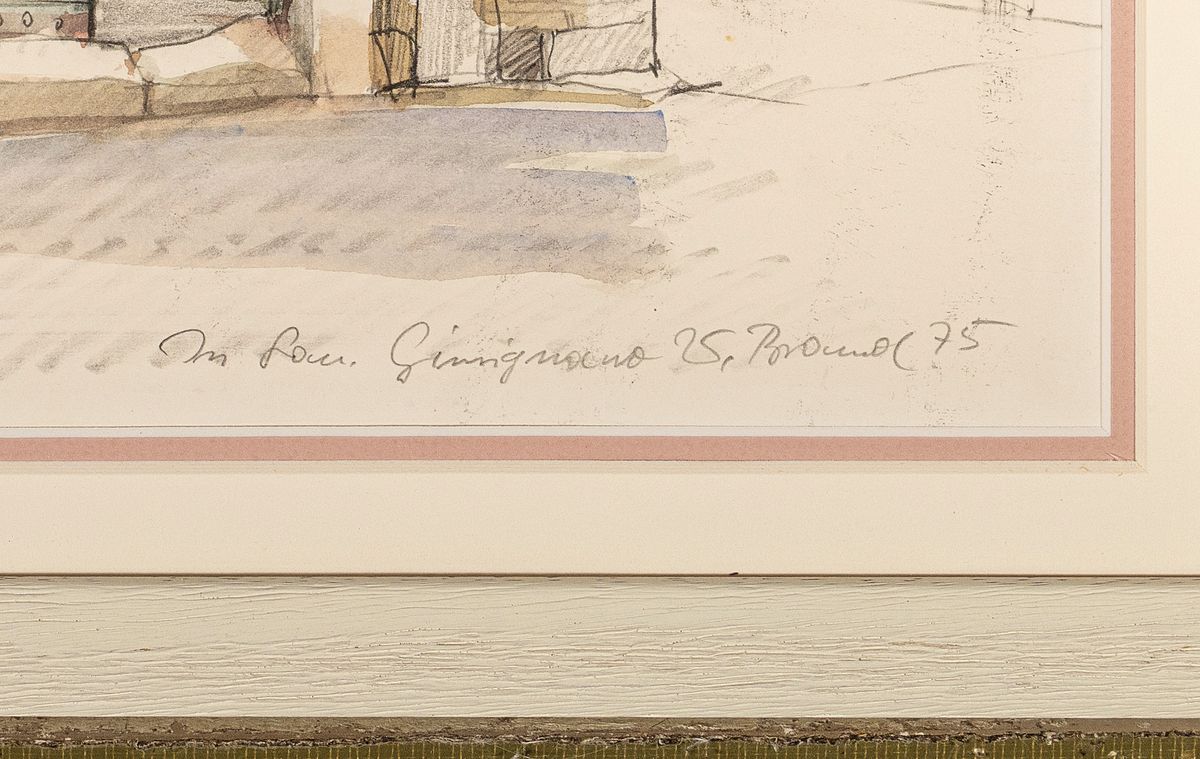 In San. Gimignano 25. Brandl 75